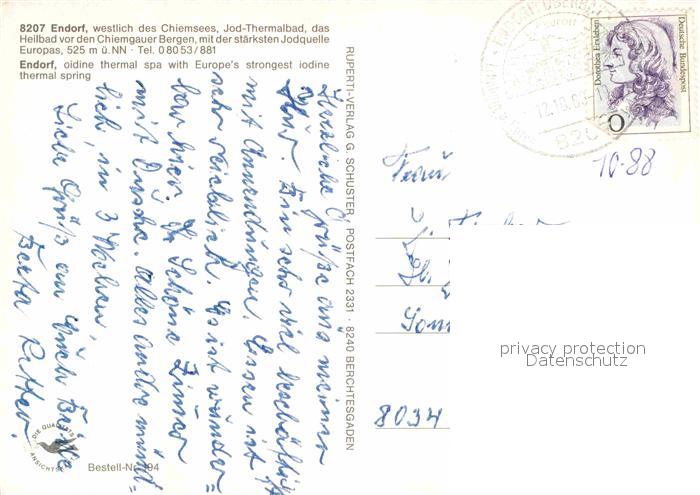 8207 Endorf, westlich des Chiemsees, Jod-Thermalbad, das
Heilbad vor den Chiemgauer Bergen, mit der stärksten Jodquelle
Europas, 525 m ü.NN · Tel. 0 80 53 / 881
Endorf, oidine thermal spa with Europe's strongest iodine
thermal spring
Herzliche Grüße aus meiner
Kur. Bin sehr viel beschäftigt
mit Anwendungen. Essen ist
sehr reichlich. Es ist wunder=
bar hier. Schöne Zimmer
mit Dusche. Alles andre münd=
lich, in 3 Wochen,
Liebe Grüße an Euch Beide
Berta Ritter.
DIE QUALITÄTS
ANSICHTS
Bestell-Nr. 94
RUPERTI-VERLAG G. SCHUSTER · POSTFACH 2331 · 8240 BERCHTESGADEN
12.10.8
820
Dorothea Erxleben
Deutsche Bundespost
0
10.88
Frau
8034
privacy protection
Datenschutz